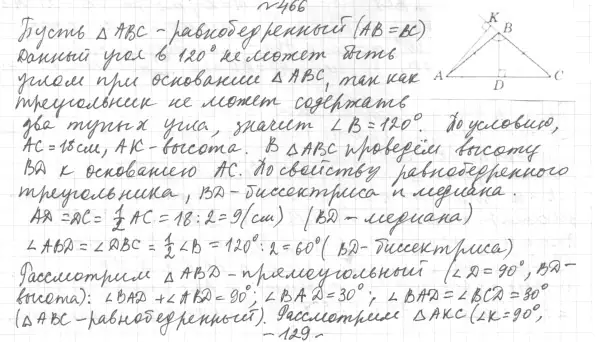 №466
Пусть △ABC - равнобедренный (AB = BC)
Данный угол в 120° не может быть
углом при основании △ABC, так как
треугольник не может содержать
два тупых угла, значит ∠B = 120°. По условию,
AC = 18см, AK - высота. В △ABC проведём высоту
BD к основанию AC. По свойству равнобедренного
треугольника, BD - биссектриса и медиана.
AD = DC = 1/2 AC = 18 : 2 = 9 (см) (BD - медиана)
∠ABD = ∠DBC = 1/2 ∠B = 120° : 2 = 60° (BD - биссектриса)
Рассмотрим △ABD - прямоугольный (∠D = 90°, BD -
высота): ∠BAD + ∠ABD = 90°; ∠BAD = 30°; ∠BAD = ∠BCD = 30°
(△ABC - равнобедренный). Рассмотрим △AKC (∠K = 90°,
- 129 -
K
B
A
D
C